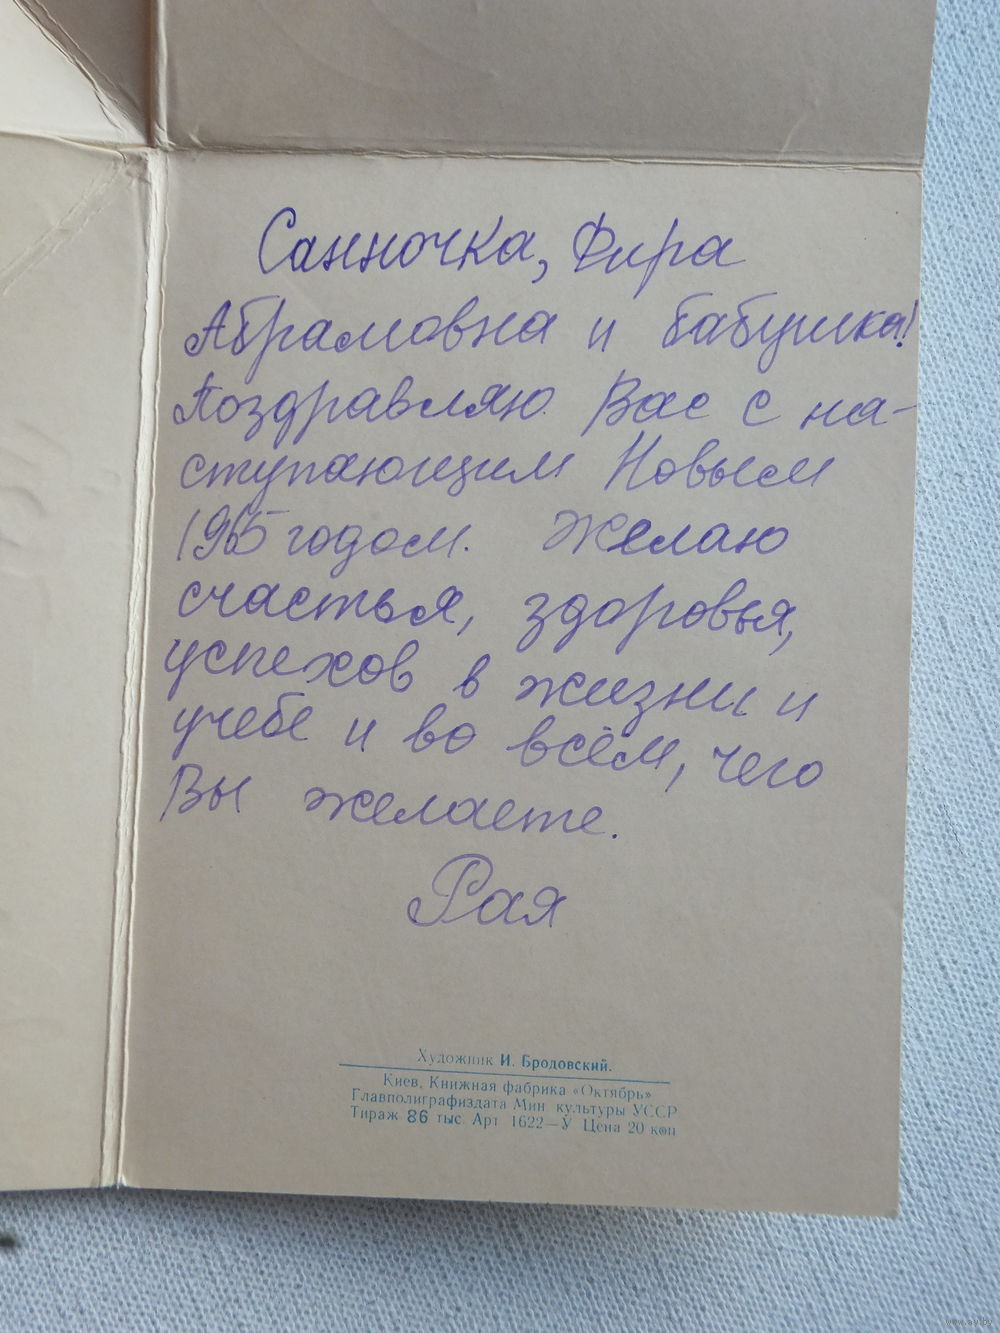 Санночка, Фира
Абрамовна и бабушка!
Поздравляю Вас с на-
ступающим Новым
1965 годом. Желаю
счастья, здоровья,
успехов в жизни и
учебе и во всём, чего
Вы желаете.
Рая
Художник И. Бродовский.
Киев, Книжная фабрика «Октябрь»
Главполиграфиздата Мин. культуры УССР
Тираж 86 тыс. Арт 1622—У Цена 20 коп
www.ay.by